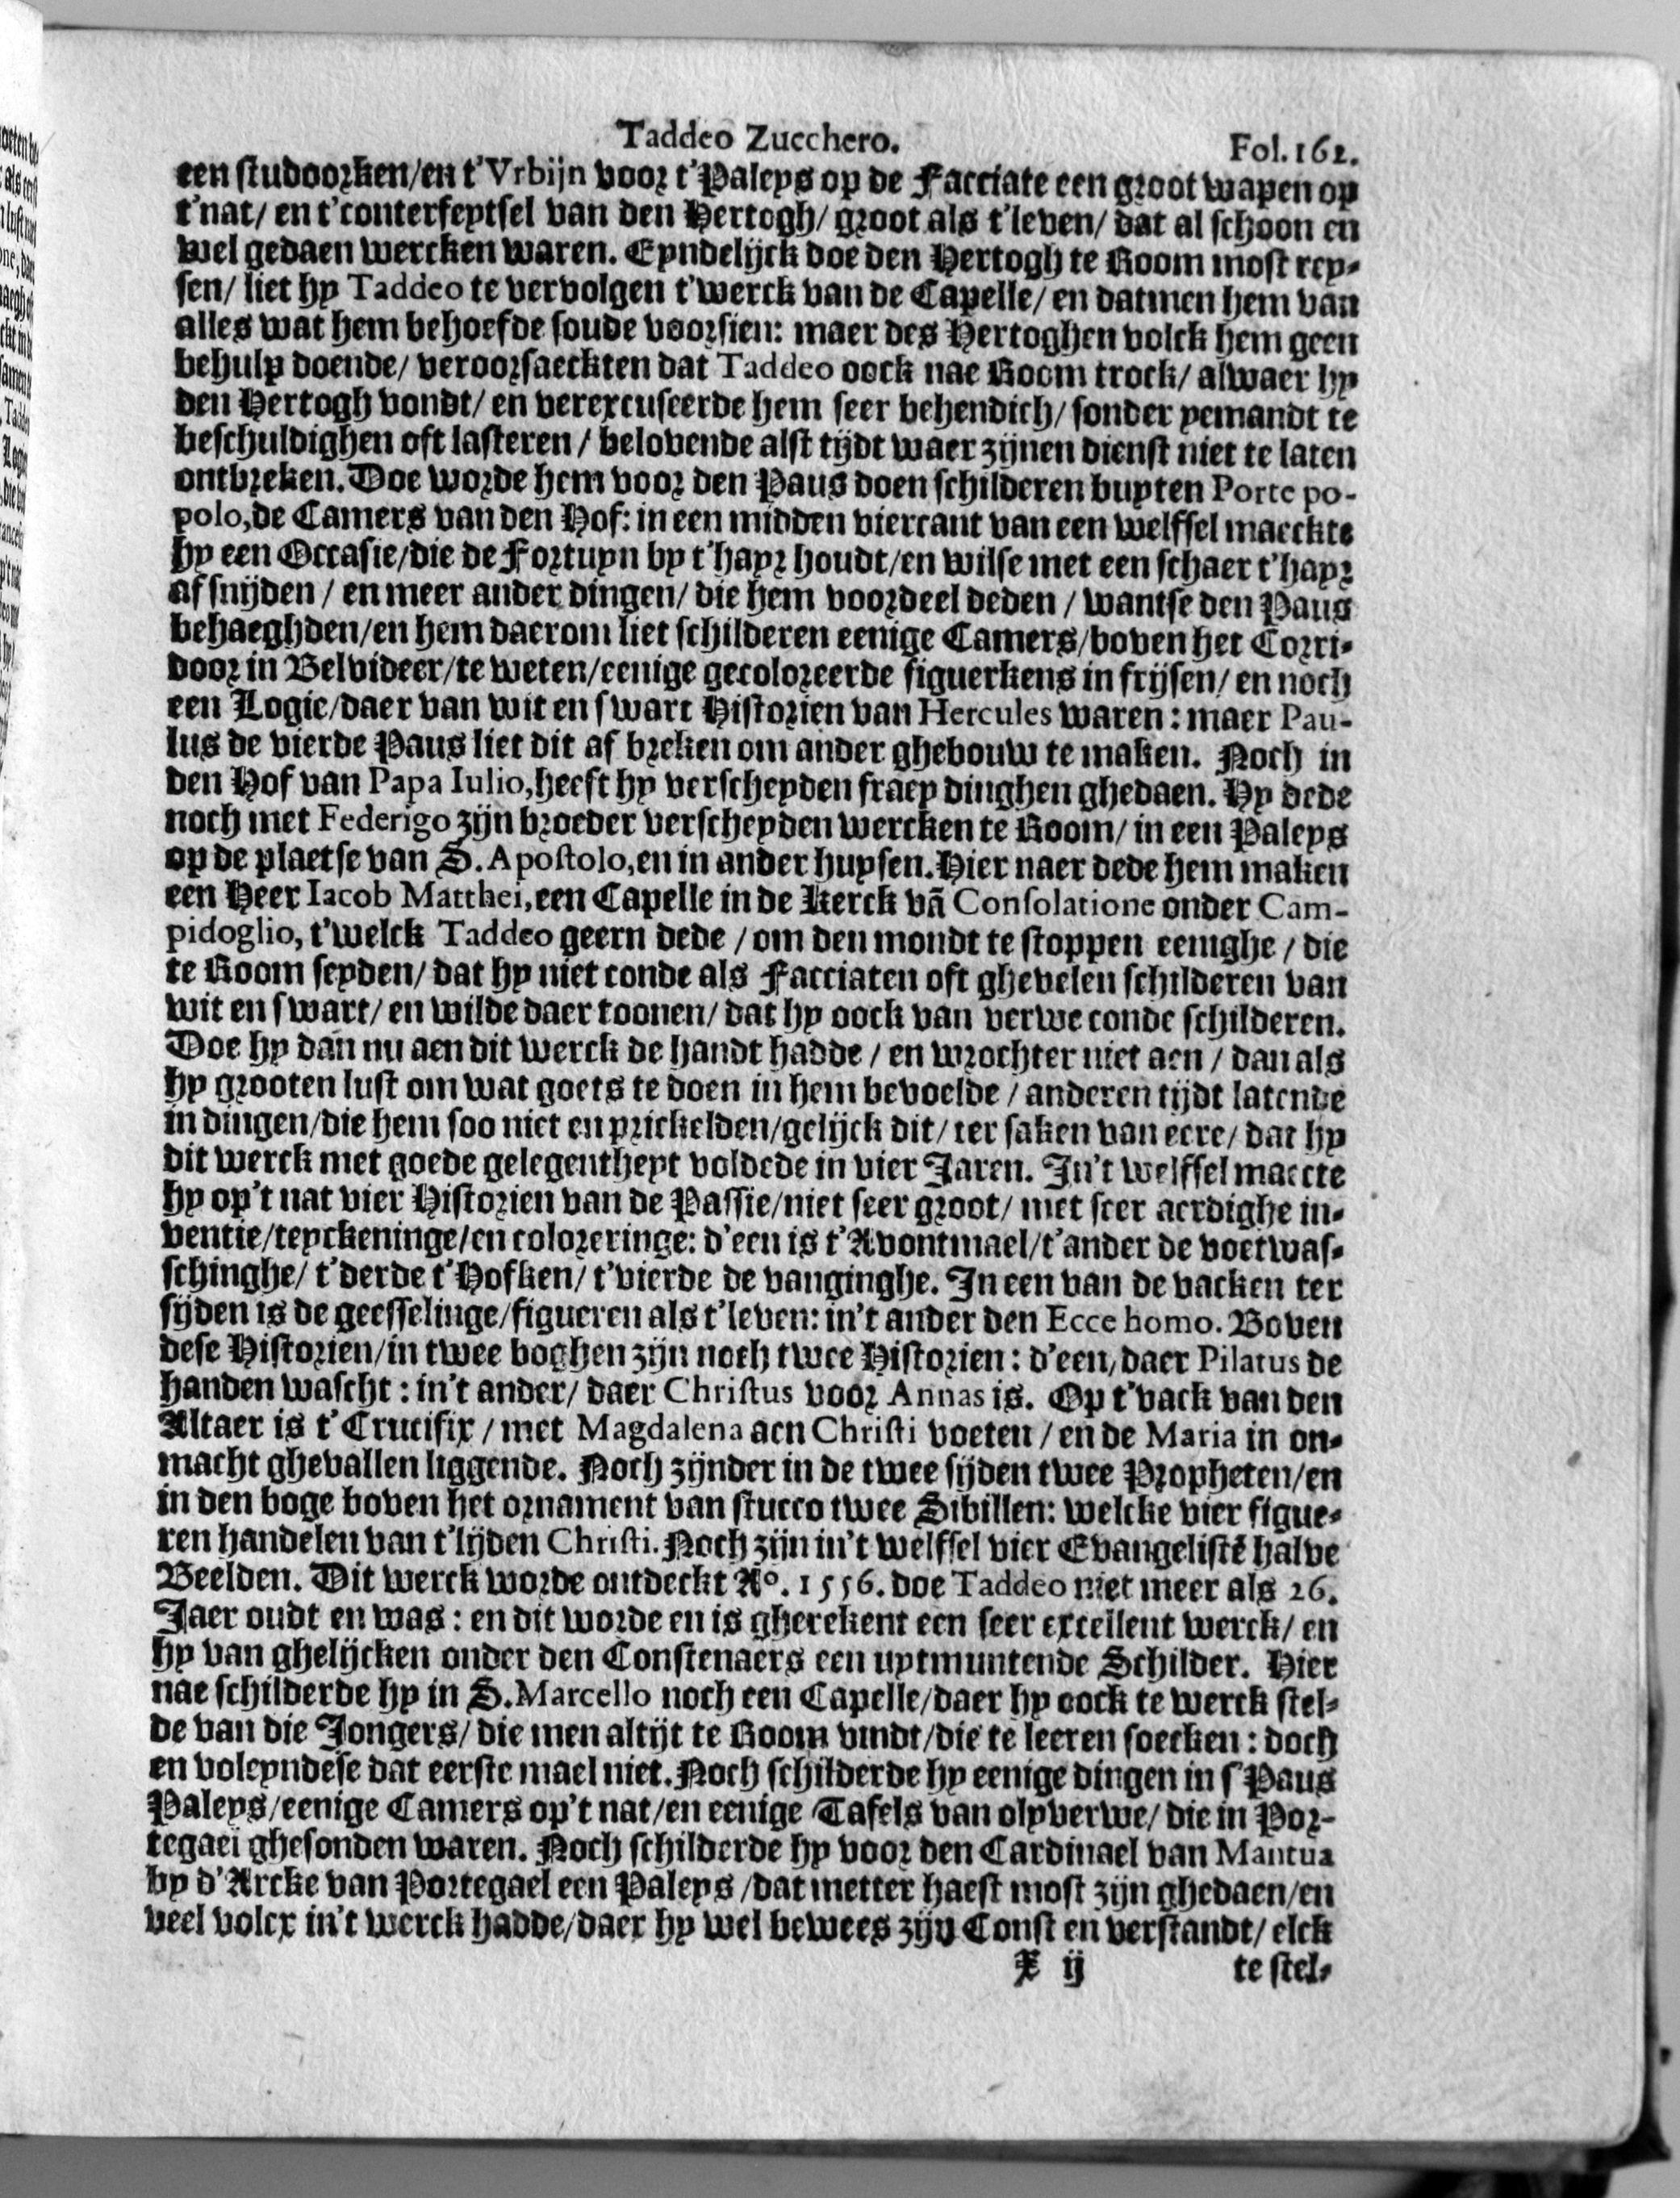 Taddeo Zucchero. Fol. 162.
een studoorken/en t'Vrbijn voor t'Paleys op de Facciate een groot wapen op
t'nat/ en t'conterfeytsel van den Hertogh/ groot als t'leven/ dat al schoon en
wel gedaen wercken waren. Eyndelijck doe den Hertogh te Room most rey-
sen/ liet hy Taddeo te vervolgen t'werck van de Capelle/ en datmen hem van
alles wat hem behoefde soude voorsien: maer des Hertoghen volck hem geen
behulp doende/ veroorsaeckten dat Taddeo oock nae Room trock/ alwaer hy
den Hertogh vondt/ en verexcuseerde hem seer behendich/ sonder yemandt te
beschuldighen oft lasteren / belovende alst tijdt waer zijnen dienst niet te laten
ontbreken. Doe worde hem voor den Paus doen schilderen buyten Porte po-
polo, de Camers van den Hof: in een midden viercant van een welffsel maeckte
hy een Occasie/die de Fortuyn by t'hayr houdt/en wilse met een schaer t'hayr
af snijden / en meer ander dingen/ die hem voordeel deden / wantse den Paus
behaeghden/en hem daerom liet schilderen eenige Camers/boven het Corri-
door in Belvideer/te weten/eenige gecoloreerde figuerkens in frijsen/ en noch
een Logie/daer van wit en swart Historien van Hercules waren: maer Pau-
lus de vierde Paus liet dit af breken om ander ghebouw te maken. Noch in
den Hof van Papa Iulio, heeft hy verscheyden fraey dinghen ghedaen. Hy dede
noch met Federigo zijn broeder verscheyden wercken te Room/ in een Paleys
op de plaetse van S. Apostolo, en in ander huysen. Hier naer dede hem maken
een Heer Iacob Matthei, een Capelle in de Kerck vā Consolatione onder Cam-
pidoglio, t'welck Taddeo geern dede / om den mondt te stoppen eenighe / die
te Room seyden/ dat hy niet conde als Facciaten oft ghevelen schilderen van
wit en swart/ en wilde daer toonen/ dat hy oock van verwe conde schilderen.
Doe hy dan nu aen dit werck de handt hadde / en wrochter niet aen / dan als
hy grooten lust om wat goets te doen in hem bevoelde / anderen tijdt latende
in dingen/die hem soo niet en prickelden/gelijck dit/ ter saken van eere/ dat hy
dit werck met goede gelegentheyt voldede in vier Jaren. In't welffsel maecte
hy op't nat vier Historien van de Passie/niet seer groot/ met seer aerdighe in-
ventie/teyckeninge/en coloreringe: d'een is t'Avontmael/t'ander de voetwas-
schinghe/ t'derde t'Hofken/ t'vierde de vanginghe. In een van de vacken ter
sijden is de geesselinge/figueren als t'leven: in't ander den Ecce homo. Boven
dese Historien/in twee boghen zijn noch twee Historien: d'een, daer Pilatus de
handen wascht: in't ander/ daer Christus voor Annas is. Op t'vack van den
Altaer is t'Crucifix / met Magdalena aen Christi voeten / en de Maria in on-
macht ghevallen liggende. Noch zijnder in de twee sijden twee Propheten/en
in den boge boven het ornament van stucco twee Sibillen: welcke vier figue-
ren handelen van t'lijden Christi. Noch zijn in't welffsel vier Evangelistē halve
Beelden. Dit werck worde ontdeckt Aº. 1556. doe Taddeo niet meer als 26.
Jaer oudt en was: en dit worde en is gherekent een seer excellent werck/ en
hy van ghelijcken onder den Constenaers een uytmuntende Schilder. Hier
nae schilderde hy in S. Marcello noch een Capelle/daer hy oock te werck stel-
de van die Jongers/ die men altijt te Room vindt/die te leeren soecken: doch
en voleyndese dat eerste mael niet. Noch schilderde hy eenige dingen in s'Paus
Paleys/eenige Camers op't nat/en eenige Tafels van olyverwe/ die in Por-
tegael ghesonden waren. Noch schilderde hy voor den Cardinael van Mantua
by d'Arcke van Portegael een Paleys /dat metter haest most zijn ghedaen/en
veel volcx in't werck hadde/daer hy wel bewees zijn Const en verstandt/ elck
X ij te stel-